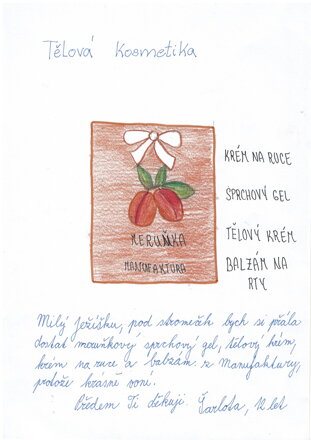 Tělová kosmetika
KRÉM NA RUCE
SPRCHOVÝ GEL
TĚLOVÝ KRÉM
BALZÁM NA
RTY
MERUŇKA
MANUFAKTURA
Milý ježíšku, pod stromeček bych si přála
dostat meruňkový sprchový gel, tělový krém,
krém na ruce a balzám z Manufaktury,
protože krásně voní.
Předem Ti děkuji. Šarlota, 12 let